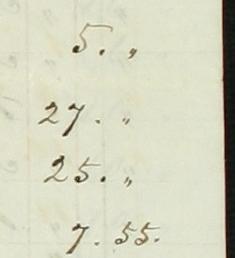 5. „
27. „
25. „
7. 55.